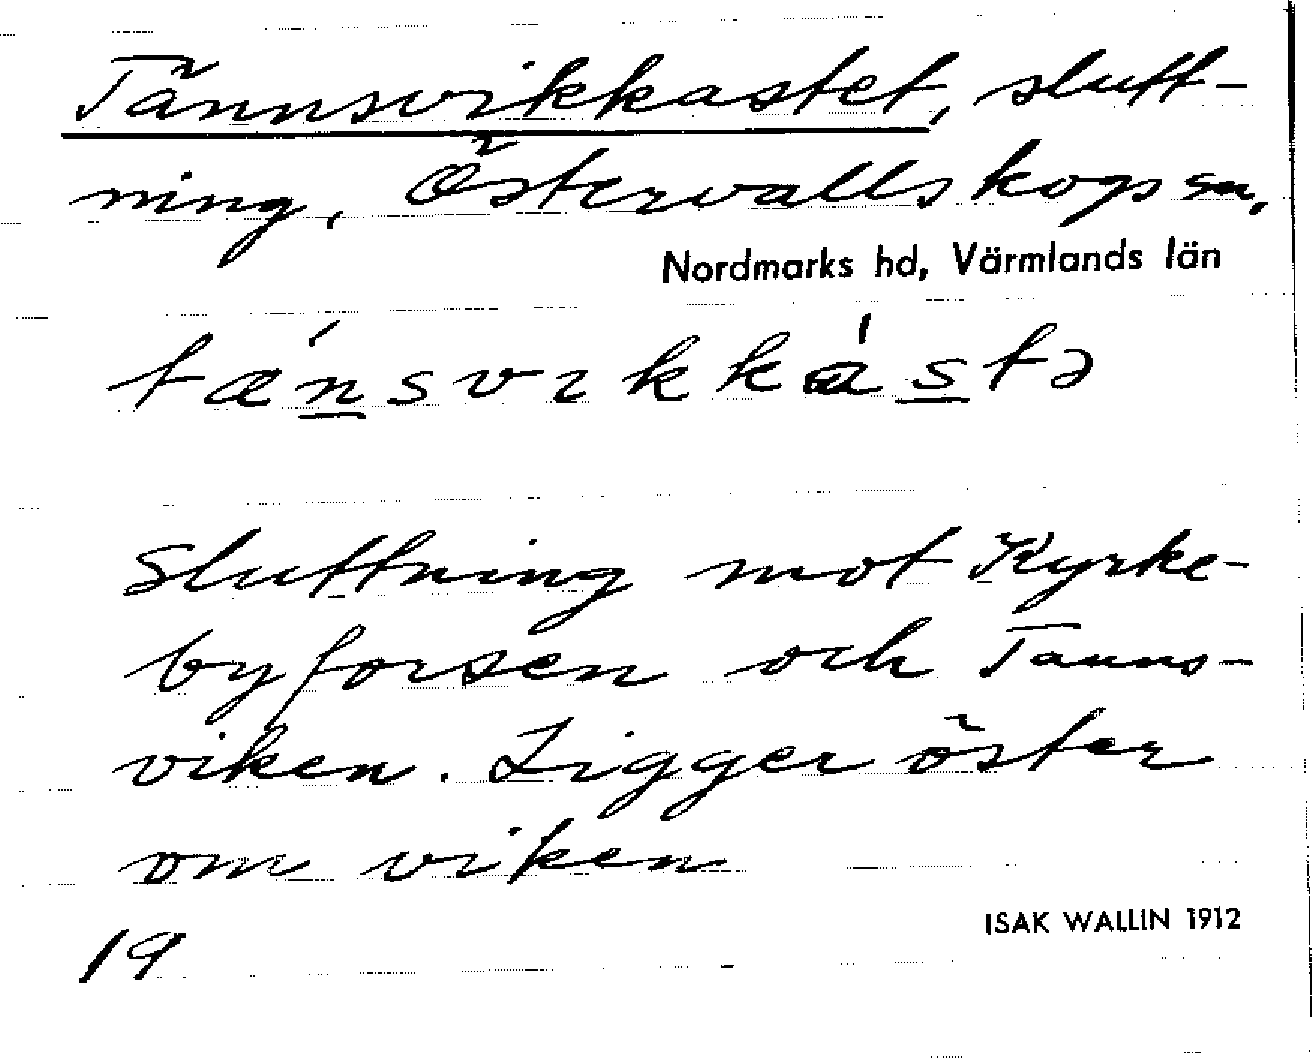 Tännsvikkastet, slutt-
ning, Östervallskogs sn,
Nordmarks hd, Värmlands län
tænsvikkástə
Sluttning mot Kyrke-
byforsen och Tanns-
viken. Ligger öster
om viken
19
ISAK WALLIN 1912